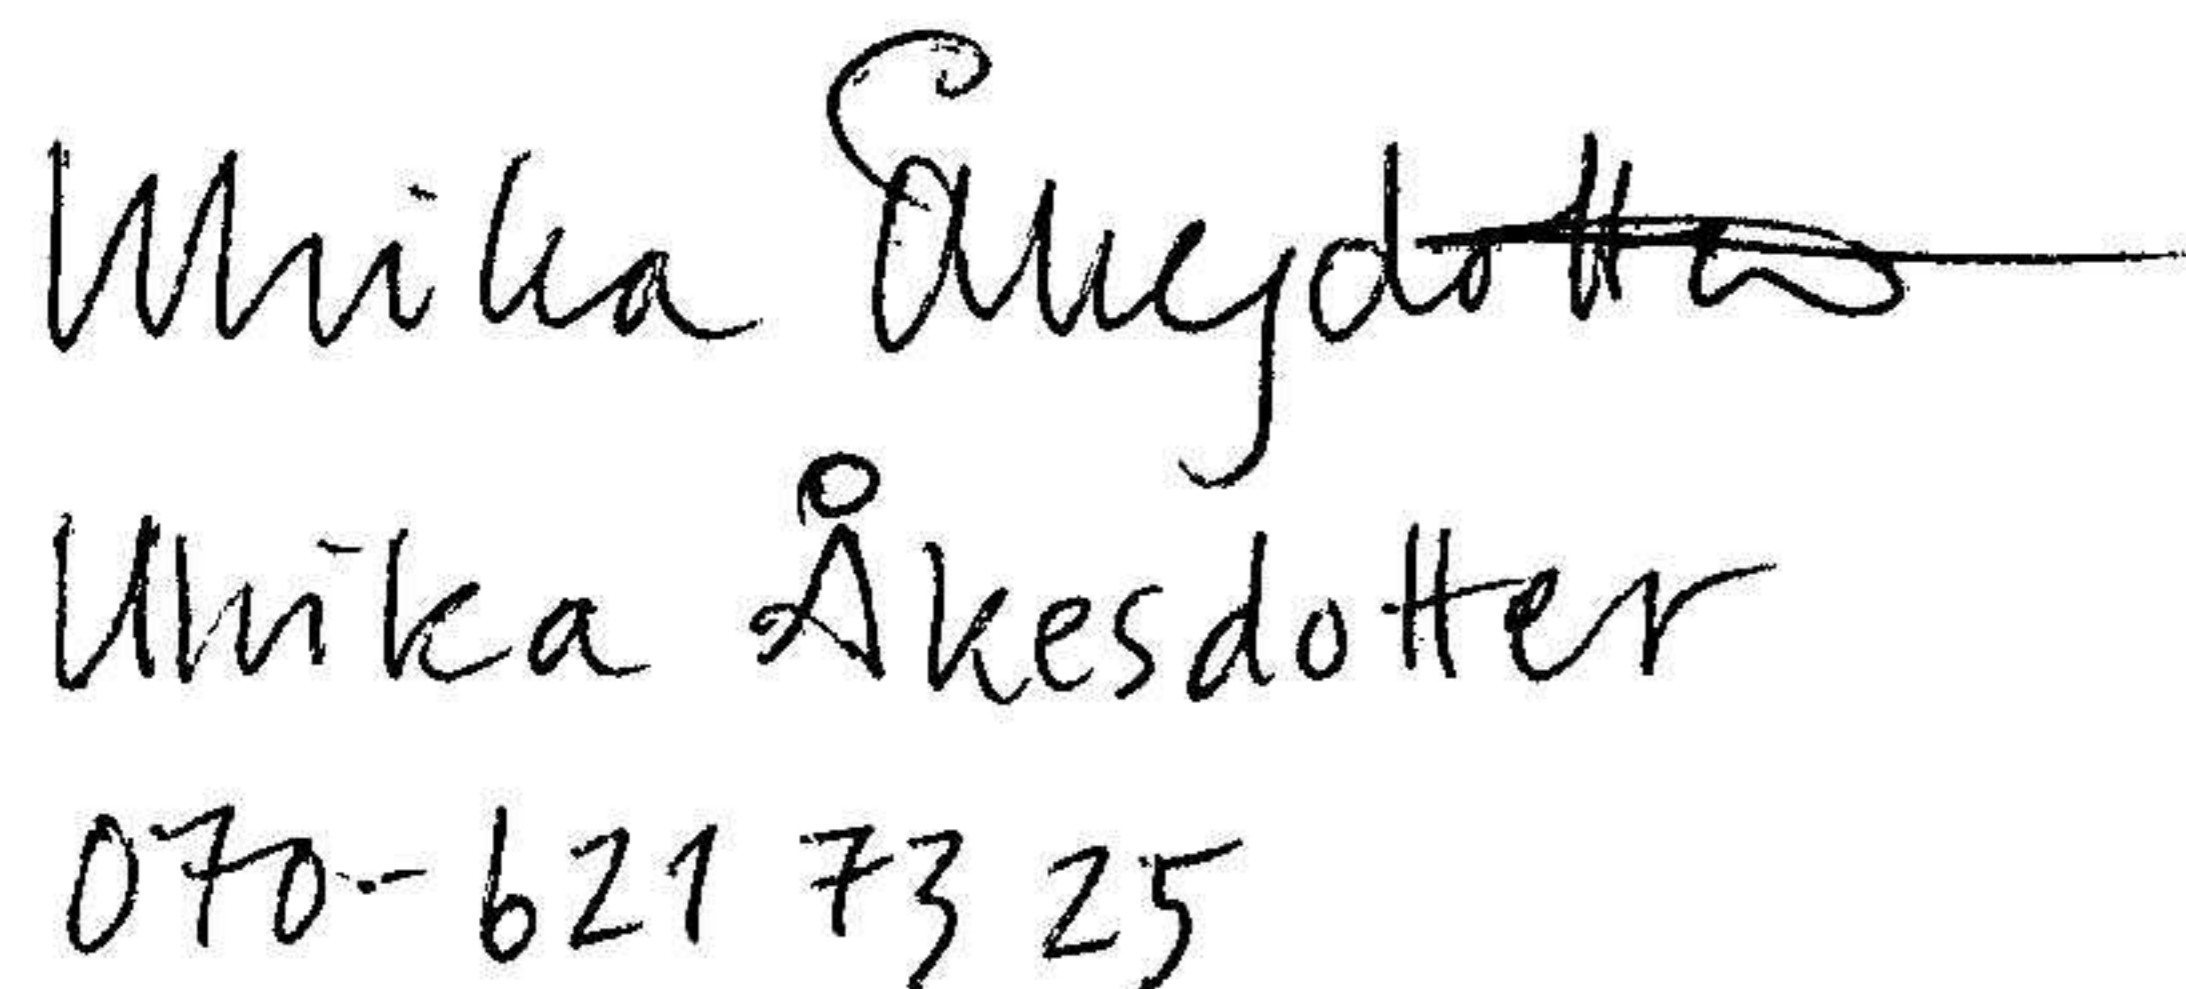 Ulrika Åkesdotter
Ulrika Åkesdotter
070-621 73 25